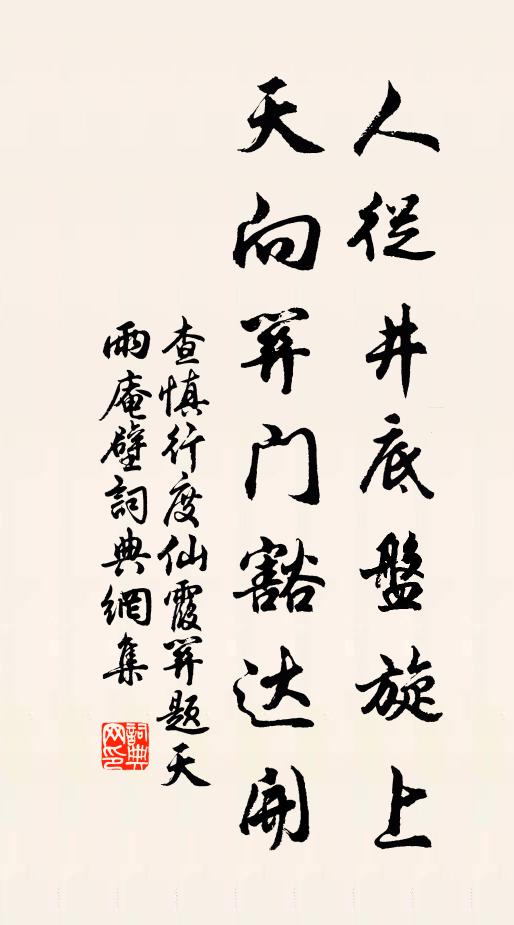 人從井底盤旋上
天向关门豁达開
查慎行度仙霞关題天
雨庵壁詞典網集
詞典网印